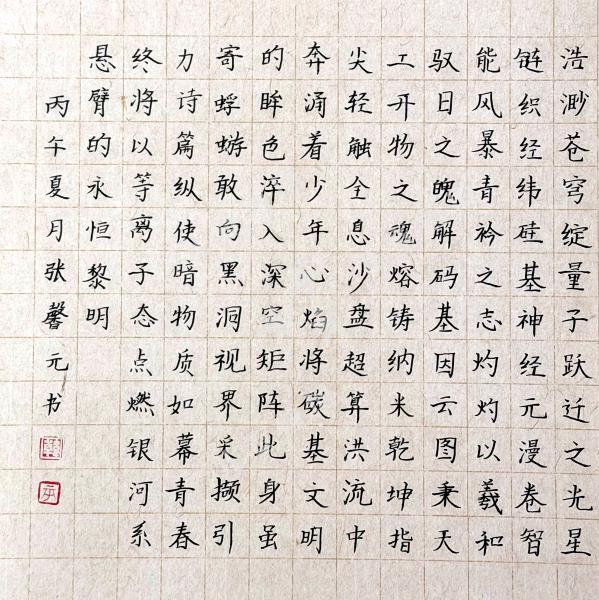 浩渺苍穹绽量子跃迁之光星
链织经纬硅基神经元漫卷智
能风暴青衿之志灼灼以羲和
驭日之魄解码基因云图秉天
工开物之魂熔铸纳米乾坤指
尖轻触全息沙盘超算洪流中
奔涌着少年心焰将碳基文明
的眸色淬入深空矩阵此身虽
寄蜉蝣敢向黑洞视界采撷引
力诗篇纵使暗物质如幕青春
终将以等离子态点燃银河系
悬臂的永恒黎明
丙午夏月张馨元书